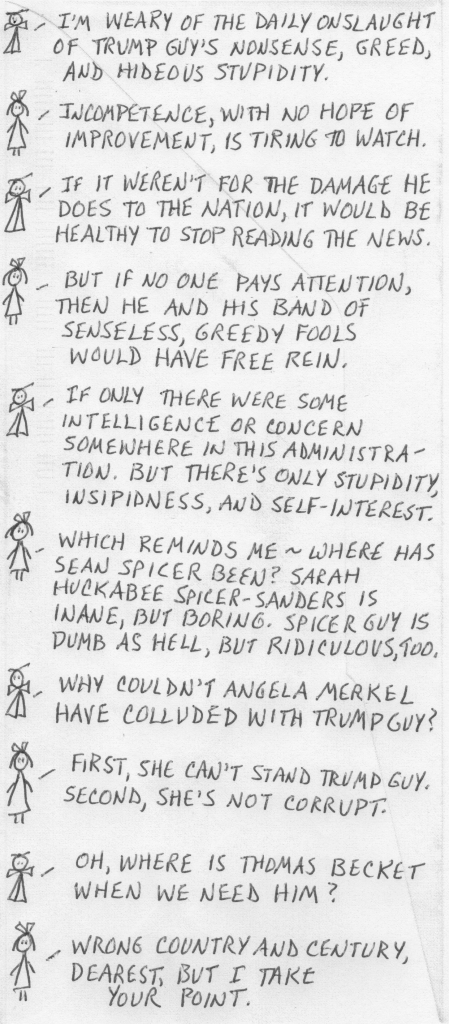 I'M WEARY OF THE DAILY ONSLAUGHT
OF TRUMP GUY'S NONSENSE, GREED,
AND HIDEOUS STUPIDITY.
INCOMPETENCE, WITH NO HOPE OF
IMPROVEMENT, IS TIRING TO WATCH.
IF IT WEREN'T FOR THE DAMAGE HE
DOES TO THE NATION, IT WOULD BE
HEALTHY TO STOP READING THE NEWS.
BUT IF NO ONE PAYS ATTENTION,
THEN HE AND HIS BAND OF
SENSELESS, GREEDY FOOLS
WOULD HAVE FREE REIN.
IF ONLY THERE WERE SOME
INTELLIGENCE OR CONCERN
SOMEWHERE IN THIS ADMINISTRA-
TION. BUT THERE'S ONLY STUPIDITY,
INSIPIDNESS, AND SELF-INTEREST.
WHICH REMINDS ME ~ WHERE HAS
SEAN SPICER BEEN? SARAH
HUCKABEE SPICER-SANDERS IS
INANE, BUT BORING. SPICER GUY IS
DUMB AS HELL, BUT RIDICULOUS, TOO.
WHY COULDN'T ANGELA MERKEL
HAVE COLLUDED WITH TRUMP GUY?
FIRST, SHE CAN'T STAND TRUMP GUY.
SECOND, SHE'S NOT CORRUPT.
OH, WHERE IS THOMAS BECKET
WHEN WE NEED HIM?
WRONG COUNTRY AND CENTURY,
DEAREST, BUT I TAKE
YOUR POINT.